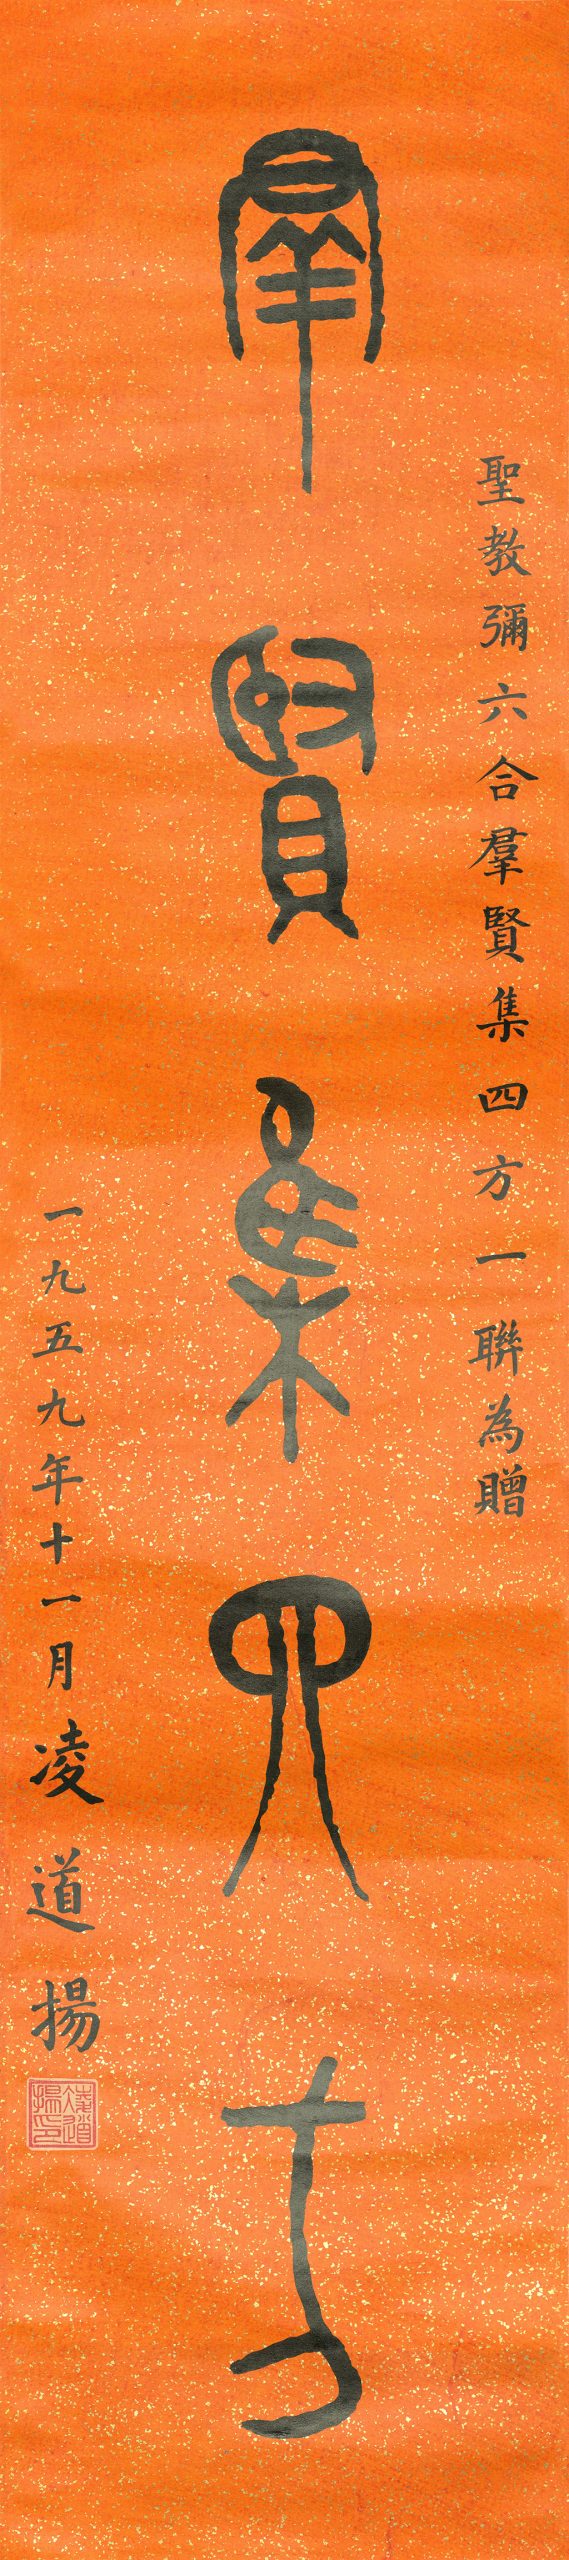 聖教彌六合羣賢集四方一聯為贈
羣賢集四方
一九五九年十一月凌道揚
凌道揚印